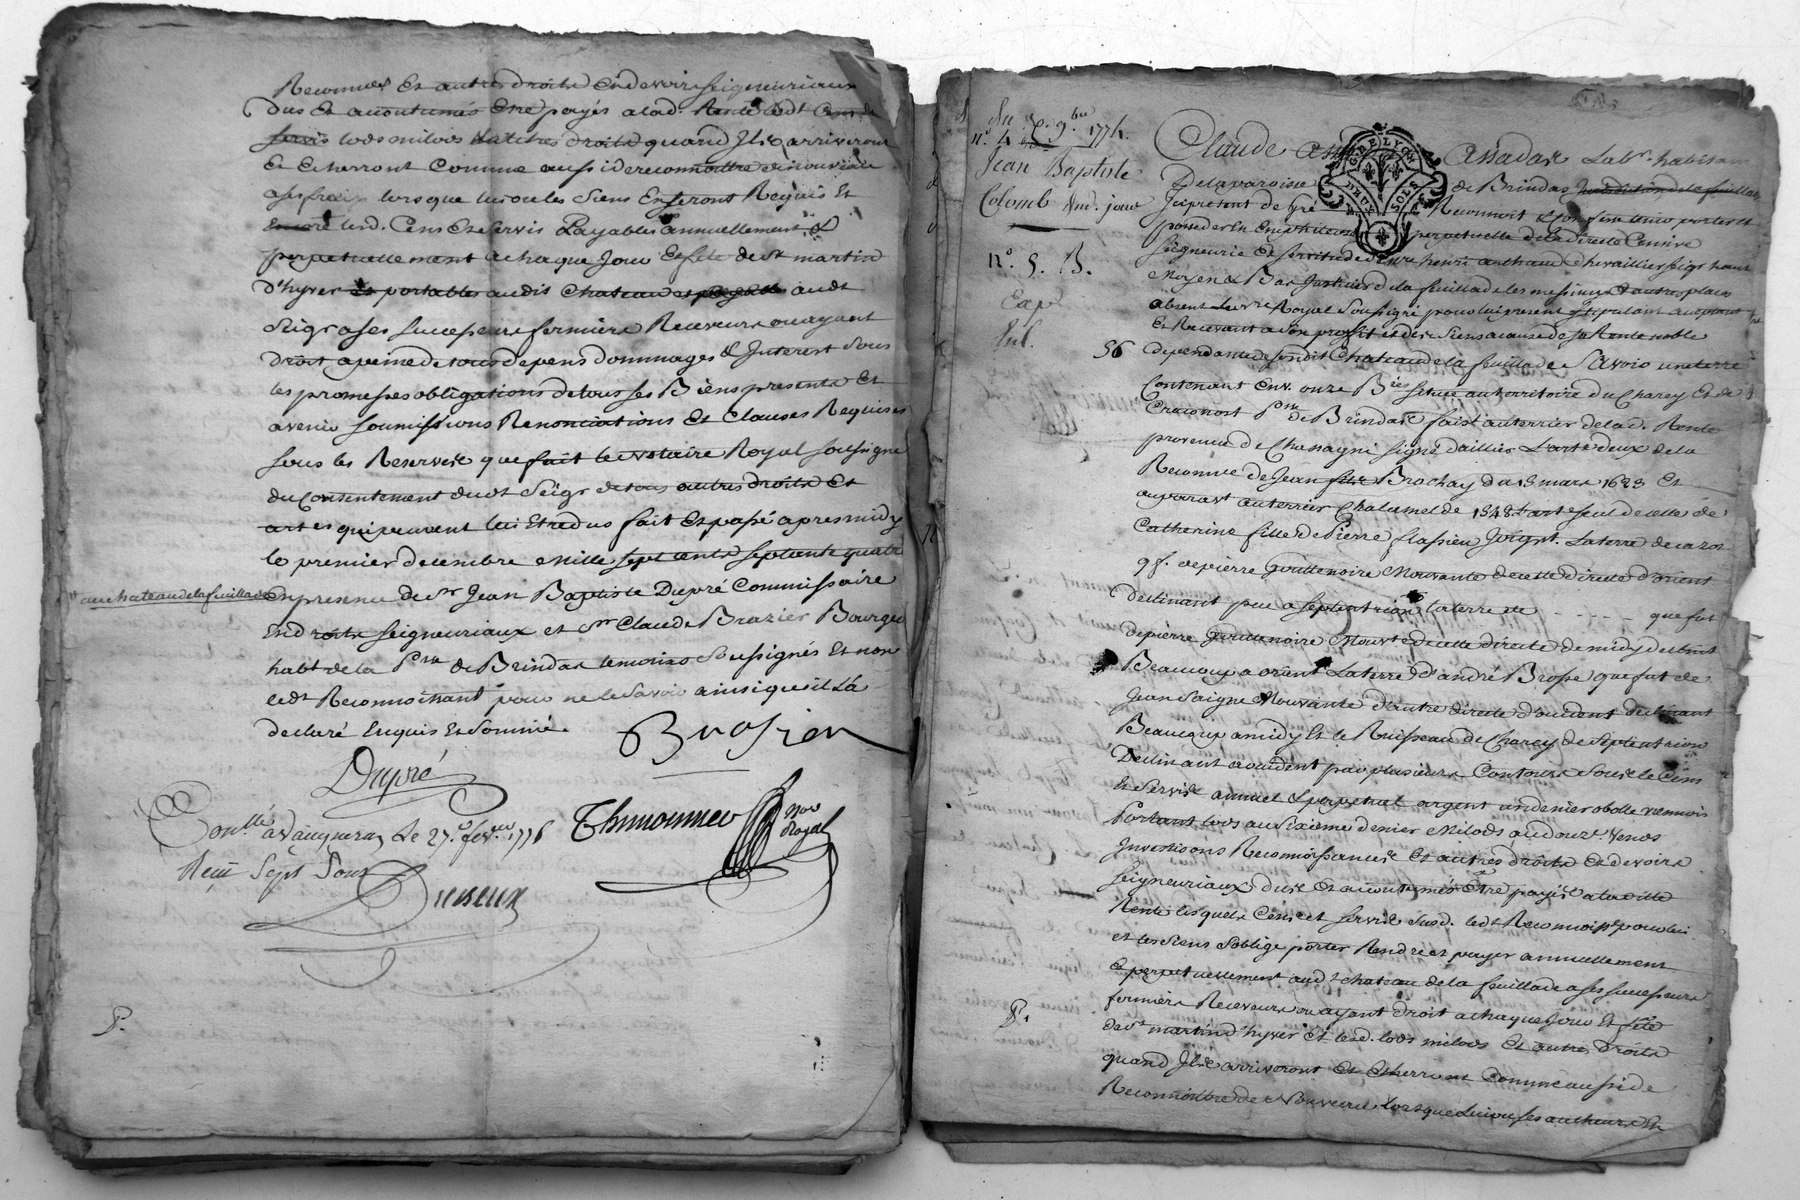 Reconnu et autres droits et devoirs seigneuriaux
dus et accoutumés etre payés a lad. Rente led. Cens et
servis lods milods et autres droits quand Ils arriveront
et echerront comme aussi de reconnoitre de nouveau
a ses fraix lorsque lui ou les siens En seront Requis Et
lesd. Cens et servis Payables annuellement &
perpetuellement a chaque Jour et fête de st martin
d'hyver et portables audit Chateau audt
seigr a ses successeurs fermiers Receveurs ou ayant
droit a peine de tous depens dommages & Interest sous
les promesses obligations de tous ses Biens presents Et
avenir soumissions Renonciations Et Clauses Requises
sous les Reserves que fait le notaire Royal soussigné
du Consentement dudt seigr de tous autres droits Et
qui peuvent lui Etre dus fait Et passé apres midy
le premier decembre mille sept cents septante quatre
au chateau de la feuillade
en presence de sr Jean Baptiste Dupré Commissaire
En droits seigneuriaux et sr Claude Brazier Bourgeois
habt de la Psse de Brindas temoins soussignés Et non
ledt Reconnoissant pour ne le savoir ainsi qu'il l'a
declaré Enquis Et sommé.
Brasier
Dupré
Thimonnier nre Royal
Conllé a Vaugneray Le 27. fevrier 1776
Reçu Sept Sous
P.
Du 9.bre 1774.
n.º 4
Jean Baptiste
Colomb
n.º 5. B.
Exp.
56
Claude Assadas Labr. habitant
De la paroisse de Brindas
Icy present de gré Reconnoit
posseder En Emphiteose perpetuelle de la directe Censive
seigneurie
moyen & Bas Justicier de la feuillade les messimy & autres places
absent le nre Royal soussigné pour lui present stipulant acceptant
Et Recevant a son proffit et des siens a cause de sa Rente noble
dependante de son dit Chateau de la feuillade Savoir une terre
Contenant env. onze Bées située au territoire du Charey Et de
Psse de Brindas faist au terrier de la d. Rente
provenue de Chassagni signé Daillier L'arte deux de la
Reconnce de Jean Brochay du mars 1623 Et
auparavt au terrier Chalumel de 1548 art seul de celle de
Catherine fille de Pierre flassieu Joignt. La terre de
q f. de pierre Gouttenoire Mouvante de cette directe d'orient
declinant peu a septentrion, la terre de - - - - que fut
de pierre Gouttenoire Mouvte de cette directe de midy declint
Beaucoup a orient La terre d'andré Brosse que fut de
Jean Saigne Mouvante d'autre directe d'occident declinant
Beaucoup a midy Et le Ruisseau de Charey de septentrion
Declinant a occident par plusieurs Contours sous le Cens
Et Servis annuel & perpetuel argent un denier obolle viennois
Portant lods au sixieme denier Milods au douze venos
Investisons Reconnoissances Et autres droits Et devoirs
seigneuriaux dus Et accoutumés Etre payés a la ditte
Rente lesquels Cens et servis susd. ledt Reconnoisst pour lui
et les siens s'oblige porter Rendre et payer annuellement
& perpetuellement aud.t chateau de la feuillade a ses successeurs
fermiers Receveurs ou ayant droit a chaque Jour Et fête
de st martin d'hyver Et lesd. lods milods Et autres Droits
quand Ils arriveront Et Echerront Comme aussi de
Reconnoitre de Nouveau lorsque lui ou ses autheurs En
P.
GNE. DE LYON
DEUX SOLS